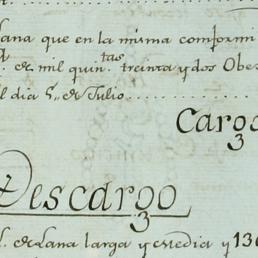 lana que en la misma comformi
de mil quin.tas treinta y dos Obe
l dia 5. de Julio
Cargo
Descargo
de Lana larga y estedia y 136